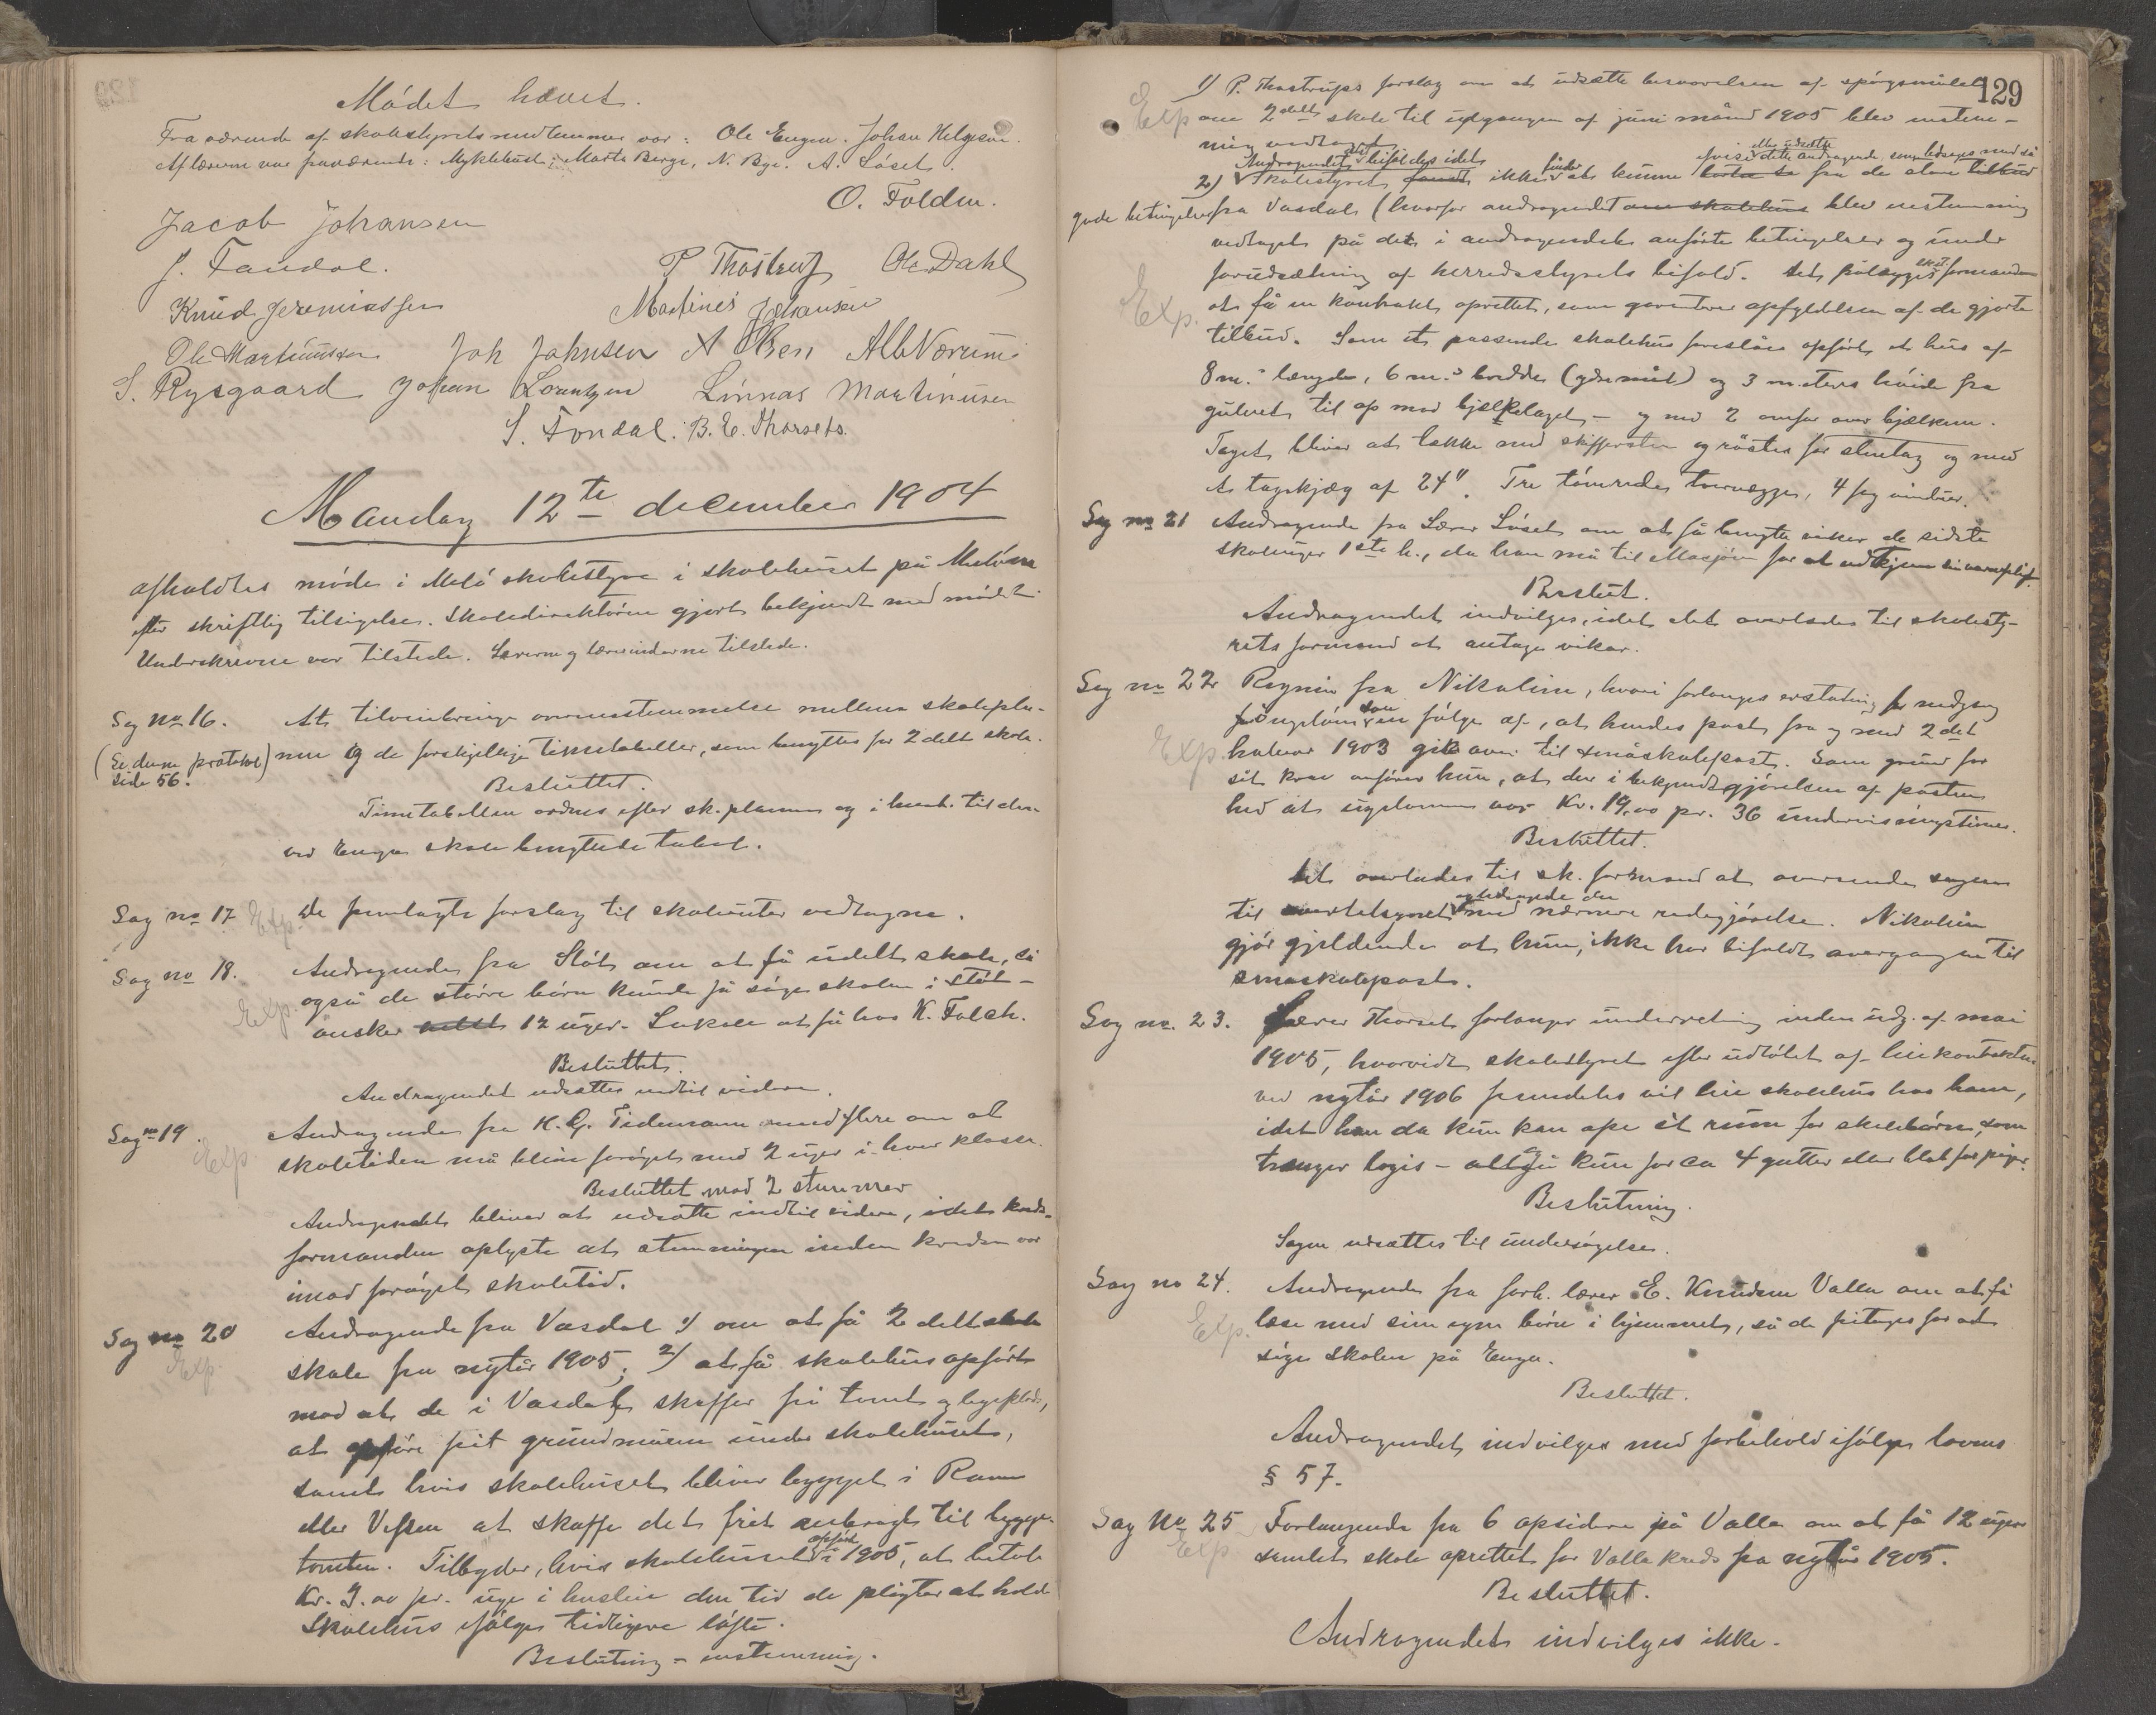 Mödet hævet.
Fraværende af skolestyrets medlemmer var: Ole Engen. Johan Helgesen.
Af lærerne var fraværende: Myklebust, Marta Berge, N. Bye. A. Löset.
O. Foldin.
Jacob Johansen
J. Fandal. P Thostrup Ole Dahl
Knud Jeremiassen Martines Johansen
Ole Martinussen Joh Johnsen A Olsen Alb Værum
S. Rysgaard Johan Lorentzen Linnas Martinusen
S. Fondal. B. E. Thorseth.
Mandag 12te december 1904
afholdtes möde i Melö skolestyre i skolehuset på
efter skriftlig tilsigelse. Skoledirektören gjort bekjendt med mödet.
Underskrevne var tilstede. Lærerne og lærerinderne tilstede.
Sag no 16. At tilveiebringe overensstemmelse mellem skolepla-
(Se denne protokol side 56.) nen og de forskjellige timetabeller, som benyttes for 2delt skole.
Besluttet.
Timetabellen ordnes efter sk.planen og i henh. til den
ved Engen skole benyttede tabel.
Sag no 17 Exp. De fremlagte forslag til skoleruter vedtagne.
Sag no 18. Andragende fra Stöt om at få udelt skole, så
Exp. også de större börn kunde få söge skolen i Stöt -
önsker 12 uger. Lokale at få hos K. Falch.
Besluttet.
Andragendet udsættes indtil videre.
Sag no 19. Andragende fra K. G. Tidemann med flere om at
Exp. skoletiden må blive foröget med 2 uger i hver klasse.
Besluttet mod 2 stemmer
Andragendet bliver at udsætte indtil videre, idet kreds-
formanden oplyste at stemningen inden kredsen var
imod foröget skoletid.
Sag no 20 Andragende fra Vasdal 1) om at få 2 delt skole
Exp. skole fra nytår 1905; 2) at få skolehus opfört
mod at de i Vasdal skaffer fri tomt og legeplads,
at opföre frit grundmuren under skolehuset,
samt hvis skolehuset bliver bygget i Rann
eller Vefsen at skaffe det frit anbragt til bygge-
tomten. Tilbyder, hvis skolehuset opföres i 1905, at betale
Kr. 3.00 pr. uge i husleie den tid de pligter at holde
Skolehus ifölge tidligere löfte.
Beslutning - enstemmig.
129
1) P. Thostrups forslag om at udsætte besvarelsen af spörgsmålet
Exp om 2delt skole til udgangen af juni måned 1905 blev enstem-
mig vedtaget
2) Andragendet bifaldes idet Skolestyret fandt ikke finder at kunne avise eller udsætte dette andragende som ledsages med så
gode betingelser fra Vasdal (hvorfor andragendet om skolehus blev enstemmig
vedtaget på det i andragendet anförte betingelser og under
forudsætning af herredsstyrets bifald. Det pålægges formanden
Exp. at få en kontrakt oprettet, som garanterer opfyldelsen af de gjorte
tilbud. Som et passende skolehus foreslåes opfört et hus af
8 m.s længde, 6 m.s bredde (ydremål) og 3 meters höide fra
gulvet til op mod bjelkelaget - og med 2 omfar over bjælkerne.
Taget bliver at tække med skiffersten og röstes for stentag og med
et tagskjæg af 24". Tre tömrede tvervægge, 4 fag vinduer.
Sag no 21 Andragende fra Lærer Löset om at få benytte vikar de sidste
skoleuger 1ste h., da han må til Mosjöen for at udtjene sin værnepligt.
Beslut.
Andragendet indvilges, idet det overlades til skolesty-
rets formand at antage vikar.
Sag no 22 Regning fra Nikoline, hvori forlanges erstatning for nedgang
i ugelön som en fölge af, at hendes post fra og med 2det
Exp halvår 1903 gik over til småskolepost. Som grund for
sit krav anförer hun, at der i bekjendtgjörelsen af posten
hed at ugelönnen var Kr. 19,00 pr. 36 undervisningstimer.
Besluttet.
Det overlades til sk. formand at oversende sagen
til med nærmere redegjörelse. Nikoline
gjör gjældende at hun ikke har bifaldt overgangen til
småskolepost.
Sag no. 23. Lærer Thorset forlanger underretning inden udg. af mai
1905, hvorvidt skolestyret efter udlöbet af leiekontrakten
ved nytår 1906 fremdeles vil leie skolehus hos ham,
idet han da kun kan ope ét rum for skolebörn, som
trænger logis - altså kun for ca 4 gutter eller blot for piger.
Beslutning.
Sagen udsættes til undersögelse.
Sag no 24. Andragende fra forh. lærer E. Knudsen Valla om at få
Exp. læse med sine egne börn i hjemmet, så de fritages for at
söge skolen på Engen.
Besluttet.
Andragendet indvilges med forbehold ifölge lovens
§ 57.
Sag No 25 Forlangende fra 6 opsidere på Valla om at få 12 ugers
Exp samlet skole oprettet for Valla kreds fra nytår 1905.
Besluttet.
Andragendet indvilges ikke.